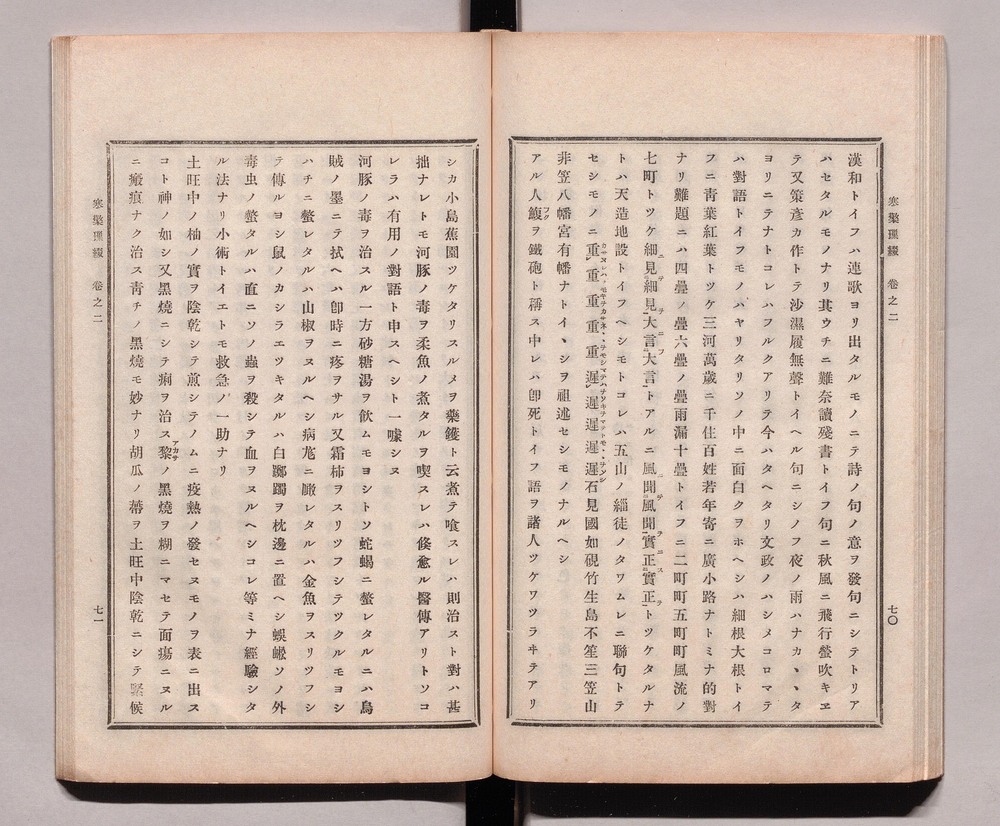 寒檠璅綴 卷之二
七〇
漢和トイフハ連歌ヨリ出タルモノニテ詩ノ句ノ意ヲ發句ニシテトリア
ハセタルモノナリ其ウチニ難奈讀殘書トイフ句ニ秋風ニ飛行螢吹キヱ
テ又策彥カ作トテ沙濕履無聲トイヘル句ニシノフ夜ノ雨ハナカヽヽタ
ヨリニテナトコレハフルクアリテ今ハタヘタリ文政ノハシメコロマテ
ハ對語トイフモノハヤリタリソノ中ニ面白クヲホヘシハ細根大根トイ
フニ靑葉紅葉トツケ三河萬歲ニ千住百姓若年寄ニ廣小路ナトミナ的對
ナリ難題ニハ四疊ノ疊六疊ノ疊雨漏十疊トイフニ二町町五町町風流ノ
七町トツケ細見細見大言大言トアルニ風聞風聞實正實正トツケタルナ
トハ天造地設トイフヘシモトコレハ五山ノ緇徒ノタワムレニ聯句トテ
セシモノニ重重重重重遲遲遲遲遲石見國如硯竹生島不笙三笠山
非笠八幡宮有幡ナトイヽシヲ祖述セシモノナルヘシ
アル人鰒ヲ鐵砲ト稱ス中レハ卽死トイフ語ヲ諸人ツケワツラヰテアリ
シカ小島蕉園ツケタリスルメヲ藥鑊ト云煮テ喰スレハ則治スト對ハ甚
拙ナレトモ河豚ノ毒ヲ柔魚ノ煮タルヲ喫スレハ倐愈ル醫傳アリトソコ
レラハ有用ノ對語ト申スヘシト一噱シヌ
河豚ノ毒ヲ治スル一方砂糖湯ヲ飮ムモヨシトソ蛇蝎ニ螫レタルニハ烏
賊ノ墨ニテ拭ヘハ卽時ニ疼ヲサル又霜柿ヲスリツフシテツクルモヨシ
ハチニ螫レタルハ山椒ヲヌルヘシ病尨ニ齧レタルハ金魚ヲスリツフシ
テ傳ルヨシ鼠ノカシラエツキタルハ白躑躅ヲ枕邊ニ置ヘシ蜈蚣ソノ外
毒虫ノ螫タルハ直ニソノ蟲ヲ殺シテ血ヲヌルヘシコレ等ミナ經驗シタ
ル法ナリ小術トイエトモ救急ノ一助ナリ
土旺中ノ柚ノ實ヲ陰乾シテ煎シテノムニ疫熱ノ發セヌモノヲ表ニ出ス
コト神ノ如シ又黑燒ニシテ痢ヲ治ス黎ノ黑燒ヲ糊ニマセテ面瘍ニヌル
ニ瘢痕ナク治ス靑チノ黑燒モ妙ナリ胡瓜ノ蔕ヲ土旺中陰乾ニシテ緊候
寒檠璅綴 卷之二
七一